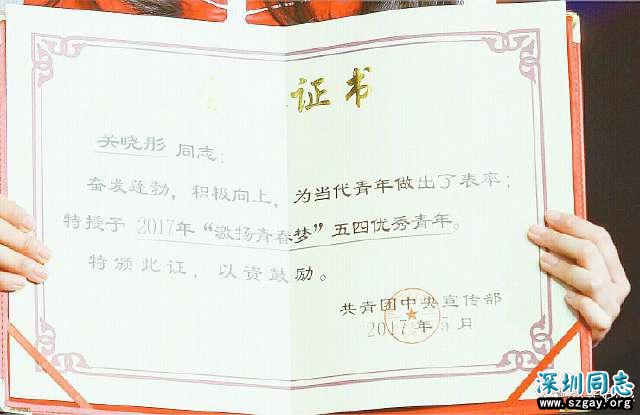 证书
关晓彤 同志:
奋发蓬勃,积极向上,为当代青年做出了表率;
特授予 2017年“激扬青春梦”五四优秀青年。
特颁此证,以资鼓励。
共青团中央宣传部
2017年5月
深圳同志
www.szgay.org